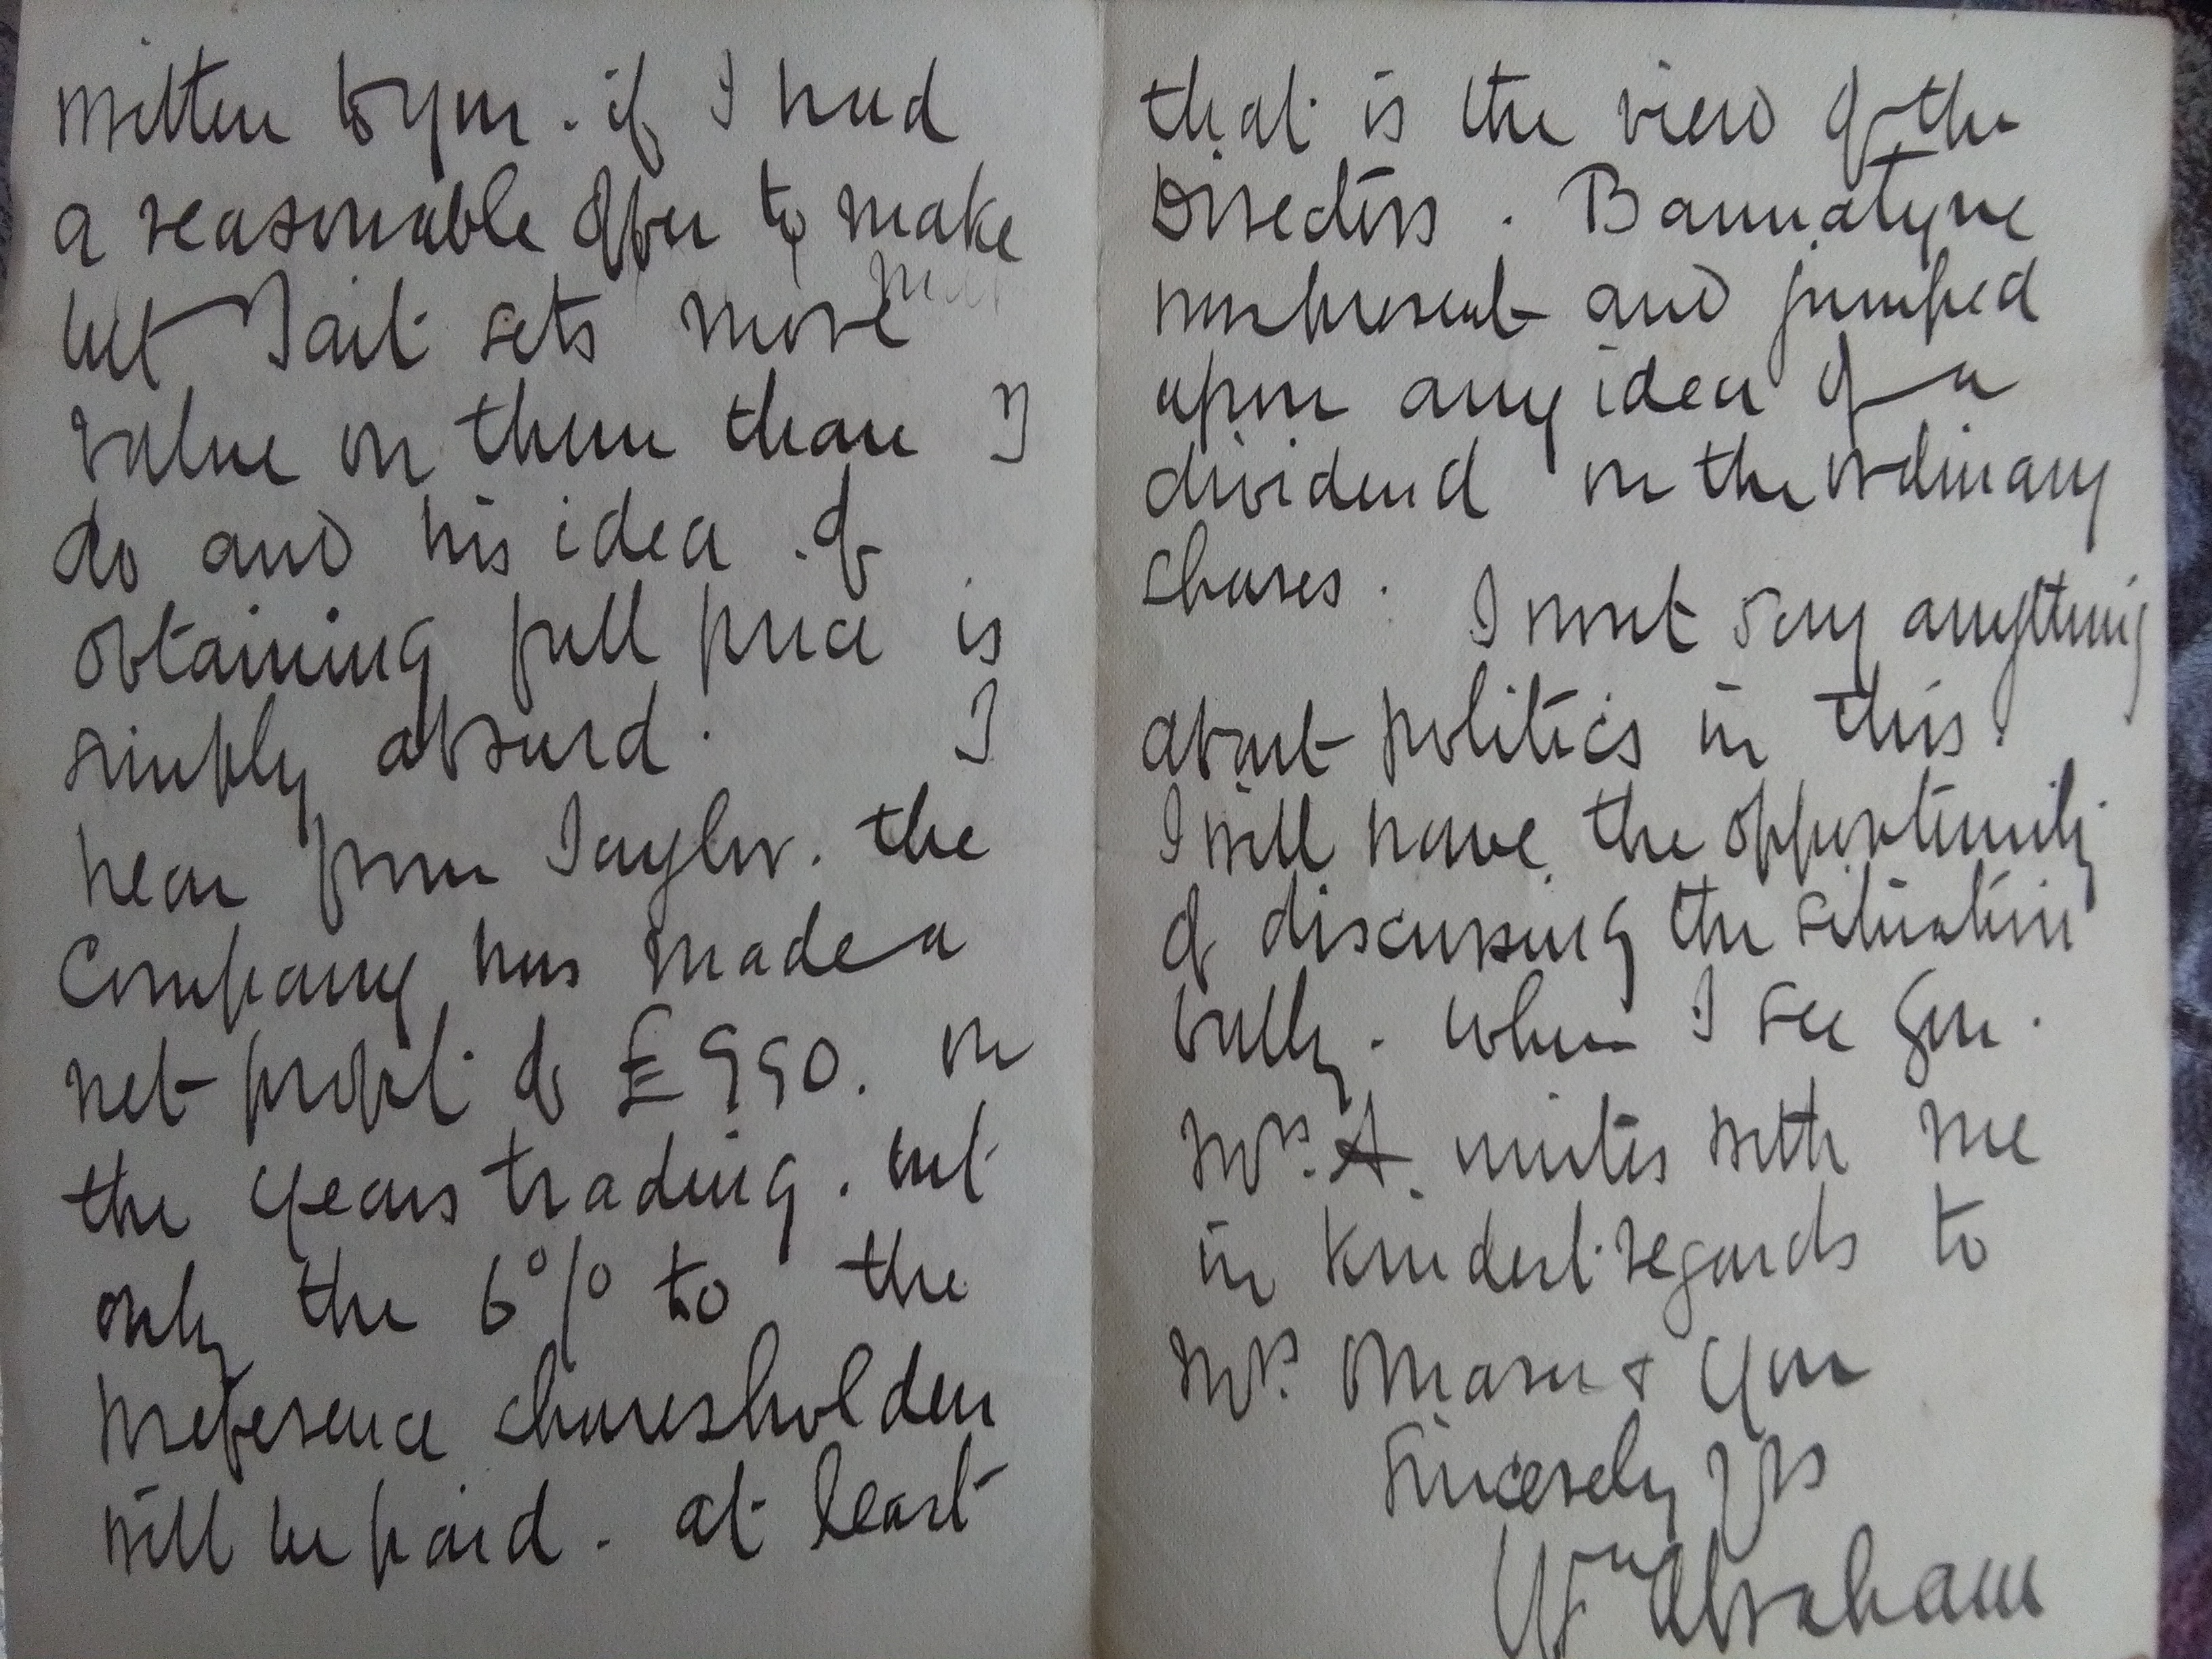 written to you. if I had
a reasonable offer to make
but Tait sets more
value on them than I
do and his idea of
obtaining full price is
simply absurd. I
hear from Taylor. the
Company has made a
net profit of £990. on
the years trading. but
only the 6% to the
preference shareholders
will be paid. at least
that is the view of the
Directors. Bannatyne
was present and jumped
upon any idea of a
dividend on the ordinary
shares.
I wont say anything
about politics in this.
I will have the opportunity
of discussing the situation
fully. when I see you.
Mrs. A. unites with me
in kindest regards to
Mrs. O'Mara & you
Sincerely Yrs
Wm Abraham